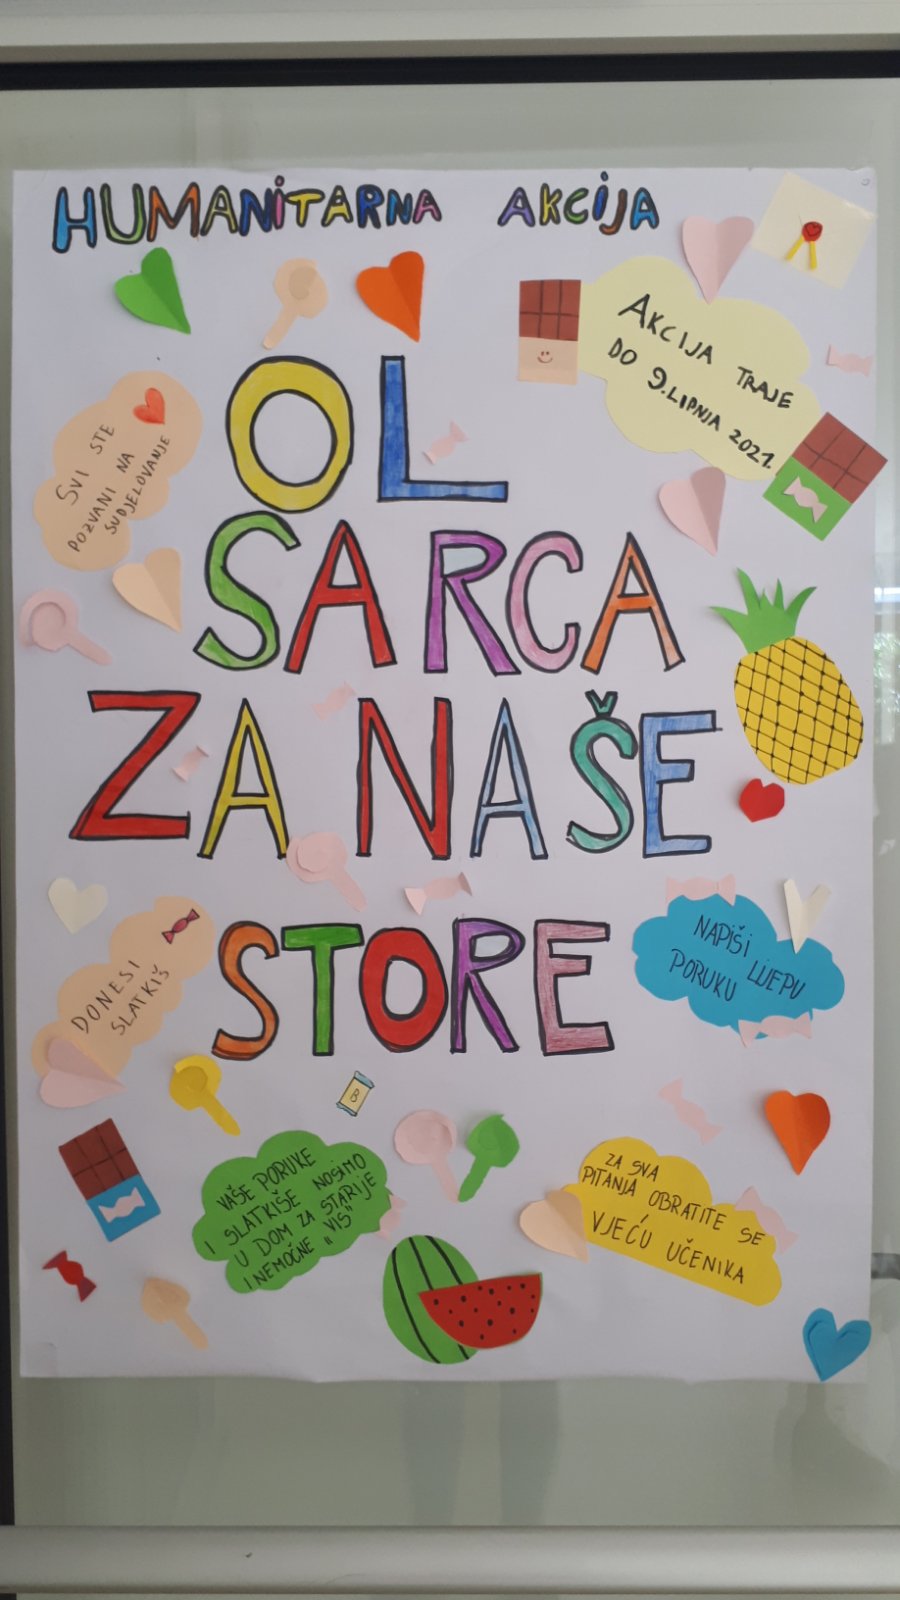 HUMANITARNA AKCIJA
AKCIJA TRAJE
DO 9. LIPNJA 2021.
SVI STE
POZVANI NA
SUDJELOVANJE
OL
SARCA
ZA NAŠE
STORE
DONESI
SLATKIŠ
NAPIŠI LIJEPU
PORUKU
B
VAŠE PORUKE
I SLATKIŠE NOSIMO
U DOM ZA STARIJE
I NEMOĆNE „VIS"
ZA SVA
PITANJA OBRATITE SE
VJEĆU UČENIKA